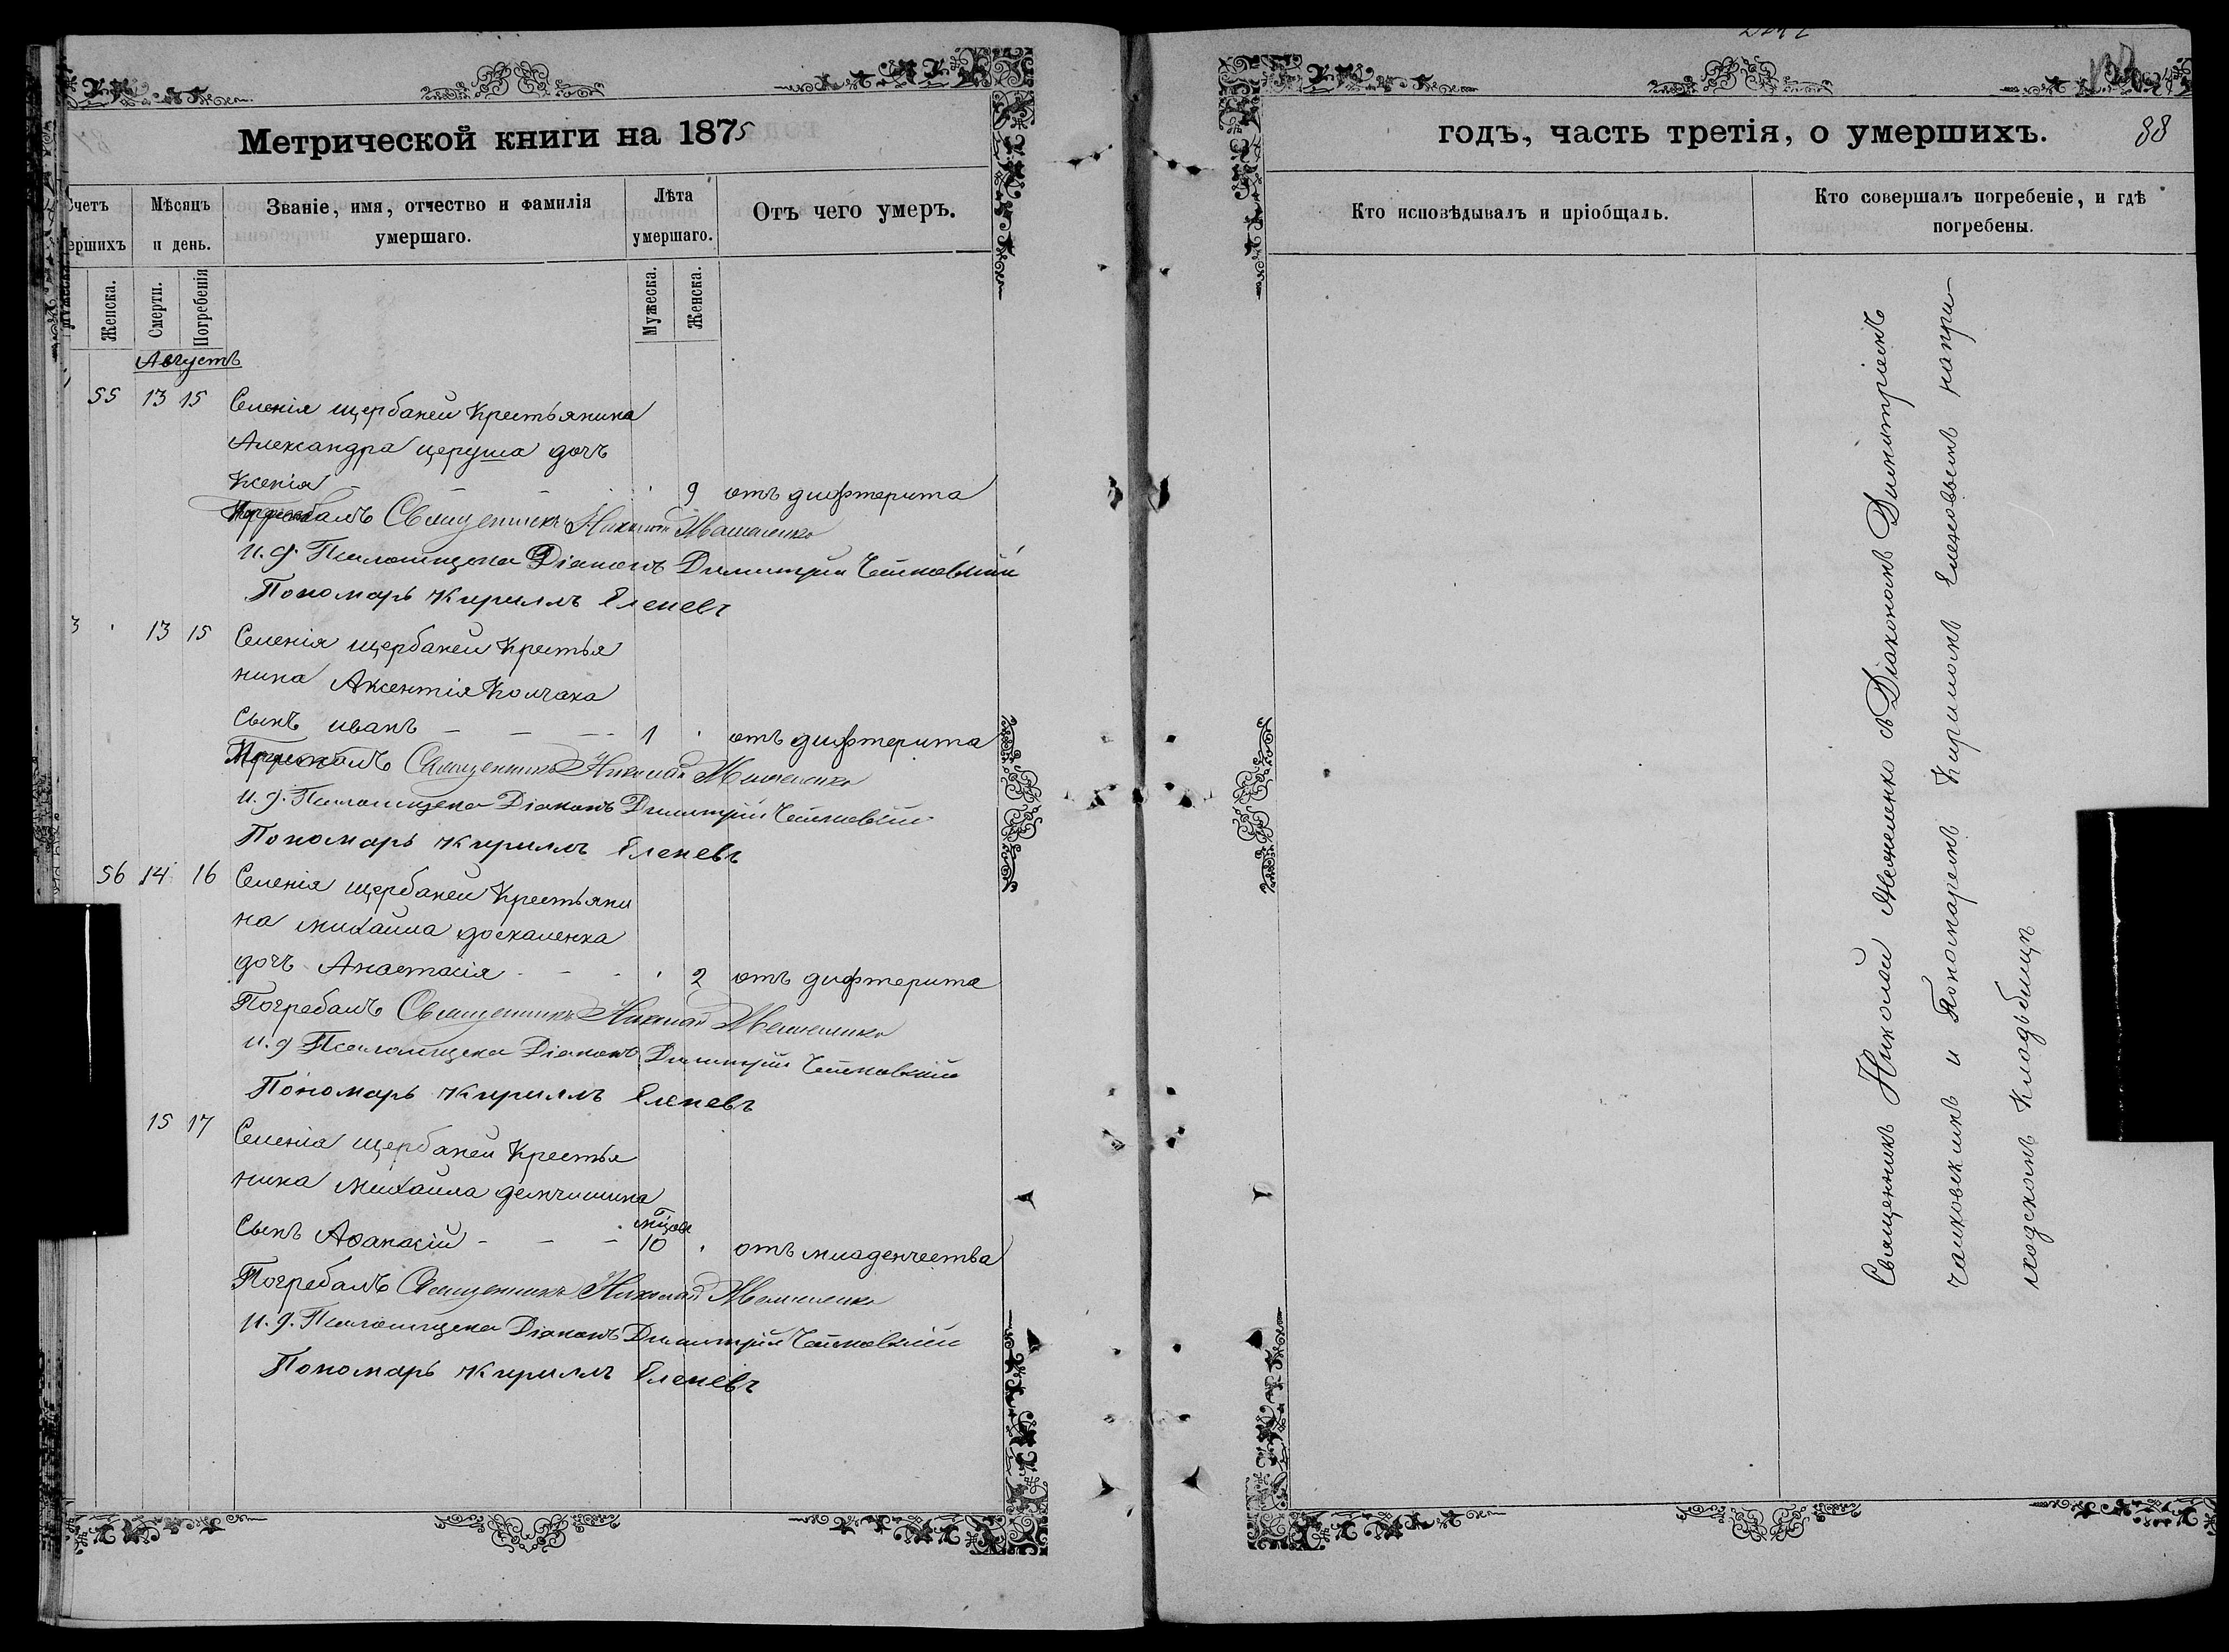 Метрической книги на 1875
Счетъ
ершихъ
Мѣсяцъ
и день.
Званіе, имя, отчество и фамилія
умершаго.
Лѣта
умершаго.
Отъ чего умеръ.
Женска.
Смерти.
Погребенія
Мужеска.
Женска.
Августъ
55 13 15 Селенія щербаней Крестьянина
Александра церуша дочь
Ксенія - - - 9 отъ дифтерита
Погребалъ Священникъ Николай
И. д. Псаломщика Діаконъ Димитрій Чайковскій
Пономарь Кириллъ Еленевъ
3 13 15 Селенія щербаней Крестья
нина Аксентія Колчака
Сынъ иванъ - - - 1 отъ дифтерита
Погребалъ Священникъ Николай
И. д. Псаломщика Діаконъ Димитрій Чайковскій
Пономарь Кириллъ Еленевъ
56 14 16 Селенія щербаней Крестьяни
на михаила доскаленка
дочь Анастасія - - - 2 отъ дифтерита
Погребалъ Священникъ Николай
И. д Псаломщика Діаконъ Димитрій Чайковскій
Пономарь Кириллъ Еленевъ
15 17 Селенія щербаней Крестья
нина михаила демчишина
Сынъ Аѳанасій - - - мцов 10 отъ младенчества
Погребалъ Священникъ Николай
И. д. Псаломщика Діаконъ Димитрій Чайковскій
Пономарь Кириллъ Еленевъ
годъ, часть третія, о умершихъ.
88
Кто исповѣдывалъ и пріобщалъ.
Кто совершалъ погребеніе, и гдѣ
погребены.
Священникъ Николай съ Діакономъ Димитріемъ
чаиковскимъ и Пономаремъ Кириломъ Еленовымъ напри-
ходскомъ Кладьбищѣ